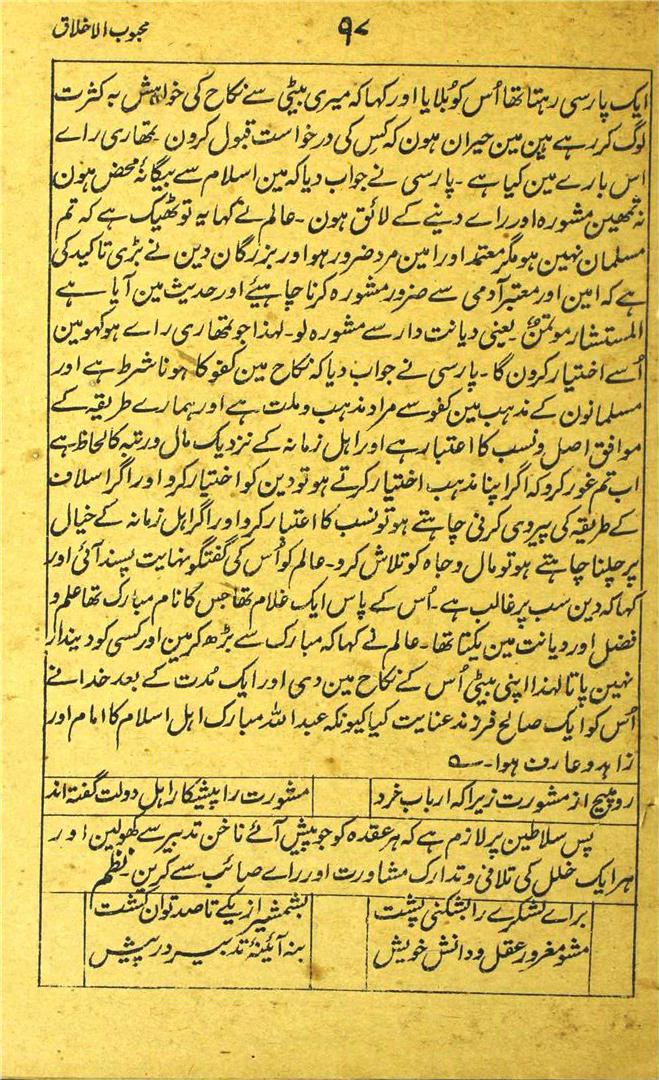 محبوب الاخلاق
۹۷
ایک پارسی رہتا تھا اُس کو بُلایا اور کہا کہ میری بیٹی سے نکاح کی خواہش بہ کثرت
لوگ کر رہے ہین مین حیران ہون کہ کس کی درخواست قبول کرون تمھاری راے
اس بارے مین کیا ہے ۔ پارسی نے جواب دیا کہ مین اسلام سے بیگانۂ محض ہون
نہ تمھین مشورہ اور راے دینے کے لائق ہون ۔ عالم نے کہا یہ تو ٹھیک ہے کہ تم
مسلمان نہین ہو مگر معتمد اور امین مرد ضرور ہو اور بزرگان دین نے بڑی تاکید کی
ہے کہ امین اور معتبر آدمی سے ضرور مشورہ کرنا چاہیئے اور حدیث مین آیا ہے
المستشار موتمن ۔ یعنی دیانت دار سے مشورہ لو ۔ لہذا جو تمھاری راے ہو کہو مین
اُسے اختیار کرون گا ۔ پارسی نے جواب دیا کہ نکاح مین کفو کا ہونا شرط ہے اور
مسلمانون کے مذہب مین کفو سے مراد مذہب و ملت ہے اور ہمارے طریقہ کے
موافق اصل و نسب کا اعتبار ہے اور اہل زمانہ کے نزدیک مال و رتبہ کا لحاظ ہے
اب تم غور کرو کہ اگر اپنا مذہب اختیار کرتے ہو تو دین کو اختیار کرو اور اگر اسلاف
کے طریقہ کی پیروی کرنی چاہتے ہو تو نسب کا اعتبار کرو اور اگر اہل زمانہ کے خیال
پر چلنا چاہتے ہو تو مال و جاہ کو تلاش کرو ۔ عالم کو اُس کی گفتگو نہایت پسند آئی اور
کہا کہ دین سب پر غالب ہے ۔ اُس کے پاس ایک غلام تھا جس کا نام مبارک تھا علم و
فضل اور دیانت مین یکتا تھا ۔ عالم نے کہا کہ مبارک سے بڑھ کر مین اور کسی کو دیندار
نہین پاتا لہذا اپنی بیٹی اُس کے نکاح مین دی اور ایک مُدت کے بعد خدا نے
اُس کو ایک صالح فرزند عنایت کیا کیونکہ عبد اللہ مبارک اہل اسلام کا امام اور
زاہد و عارف ہوا ۔ ؎
رو مپیچ از مشورت زیرا کہ ارباب خرد مشورت را پیشکار اہل دولت گفتہ اند
پس سلاطین پر لازم ہے کہ ہر عقدہ کو جو پیش آئے ناخن تدبیر سے کھولین اور
ہر ایک خلل کی تلافی و تدارک مشاورت اور راے صائب سے کرین ۔ نظم
براے لشکرے را بشکنی پشت بشمشیر از یکے تا صد توان کشت
مشو مغرور عقل و دانش خویش بنہ آئینۂ تدبیر در پیش